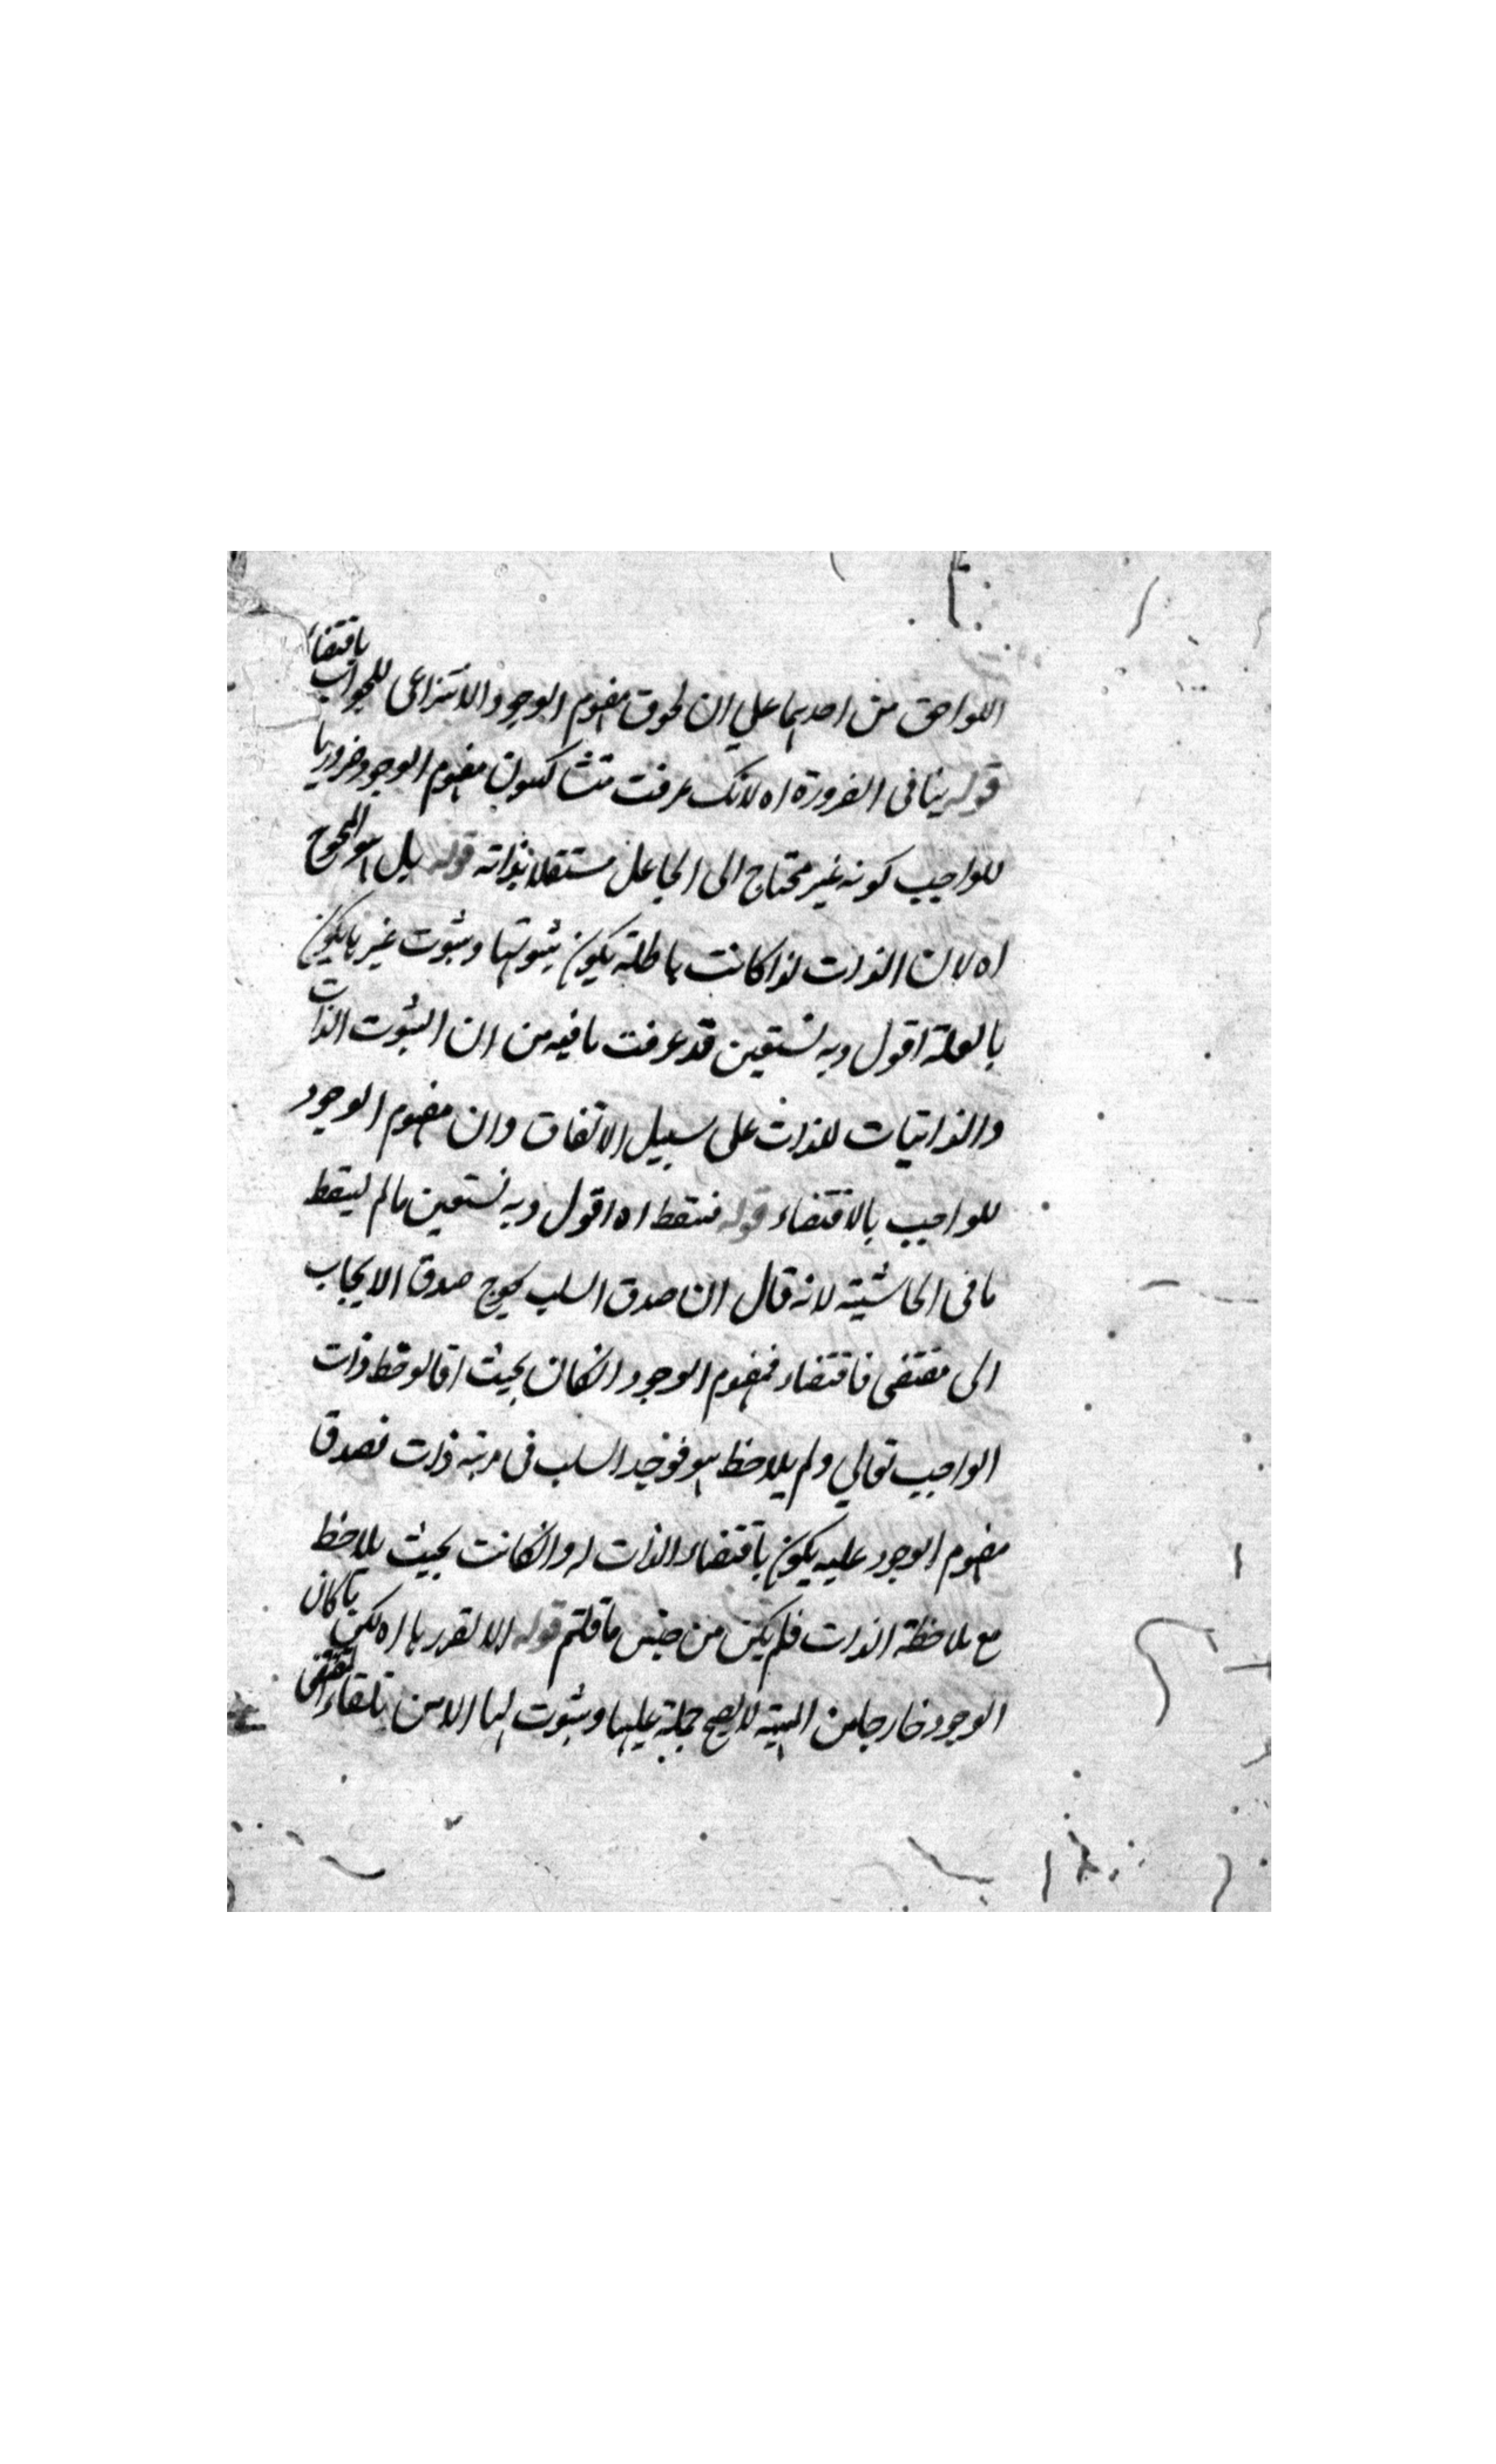 اللواحق من احديهما على ان لحوق مفهوم الوجود الانتزاعى للجواب باقتضاء
قوله ينافى الضرورة اه لانك عرفت منشا كون مفهوم الوجود ضروريا
للواجب كونه غير محتاج الى الجاعل مستقلا بذاته قوله بل هو المحوج
اه لان الذات لذا كانت باطلة يكون ثبوتها وثبوت غيرها يكون
بالعلة اقول وبه نستعين قد عرفت ما فيه من ان الثبوت الذات
والذاتيات للذات على سبيل الاتفاق وان مفهوم الوجود
للواجب بالاقتضاء قوله فسقط اه اقول وبه نستعين مالم يسقط
ما فى الحاشية لانه قال ان صدق السلب يحوج صدق الايجاب
الى مقتضى فاقتضاء مفهوم الوجود انكان بحيث اذا لوحظ ذات
الواجب تعالي ولم يلاحظ هو فوجد السلب فى مرتبة ذات فصدق
مفهوم الوجود عليه يكون باقتضاء الذات له وانكانت بحيث يلاحظ
مع ملاحظة الذات فلم يكن من جنس ما قلتم قوله الا لتقرر ها اه لكن ما كان
الوجود خارجا من المهية لا يصح حمله عليها وثبوت لها الا من تلقاء المقتضى